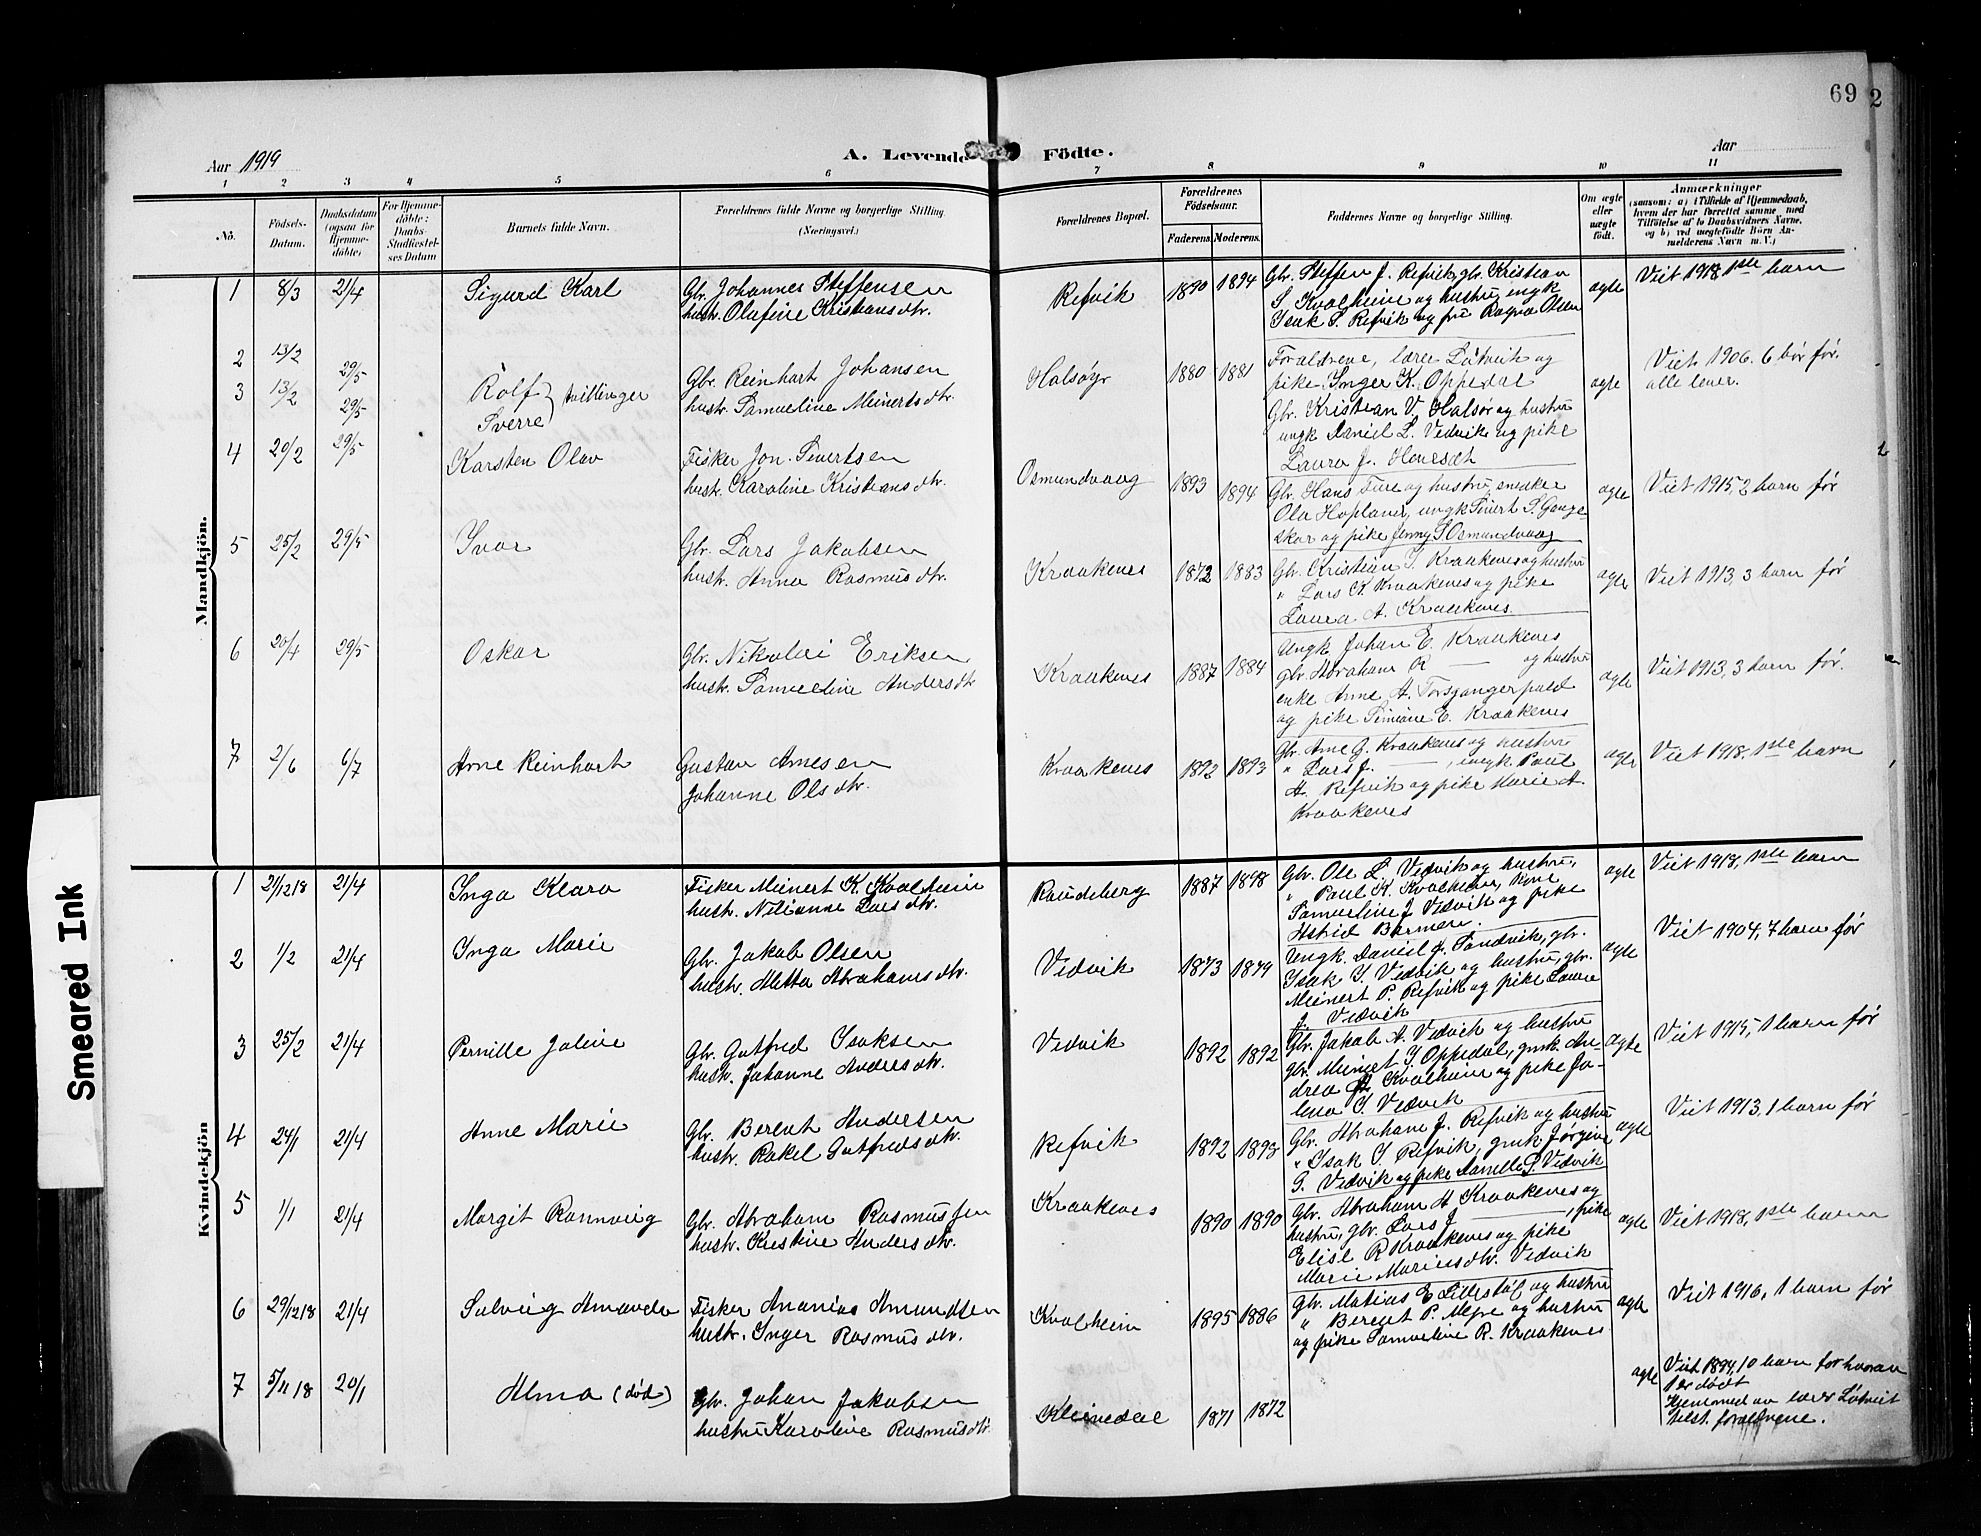 69
2
Aar 1919
A. Levende Födte.
Aar
1 2 3 4 5 6 7 8 9 10 11
Nö.
Födsels-Datum.
Daabsdatum (ogsaa for Hjemmedöbte)
For Hjemmedöbte: Daabs-Stadfæstelses Datum
Barnets fulde Navn.
Forældrenes fulde Navne og borgerlige Stilling. (Næringsvei.)
Forældrenes Bopæl.
Forældrenes Födselsaar.
Faderens. Moderens.
Faddernes Navne og borgerlige Stilling.
Om ægte eller uægte födt.
Anmærkninger
(saasom: a) i Tilfælde af Hjemmedaab, hvem der har forrettet samme med Tilföielse af to Daabsvidners Navne, og b) ved uegtefödte Börn Anmelderens Navn m. V.)
Mandkjön.
1 8/3 21/4 Sigurd Karl
Gbr. Johannes Steffensen
hustr. Olafine Kristiansdtr.
Refvik 1890 1894
Gbr. Steffen J. Refvik, gbr. Kristian
S. Kvalheim og hustru, ungk
Isak S. Refvik og pike Ragna Olsen
ægte
Viet 1918 1ste barn
2 13/2 29/5
3 13/2 29/5
Rolf
Sverre
tvillinger
Gbr. Reinhart Johansen
hustr. Samueline Meinertsdtr.
Halsöyr 1880 1881
Forældrene, lærer Låtveit og
pike Inger K. Oppedal
Gbr. Kristian V. Halsør og hustru
ungk Daniel L. Vedvik og pike
Laura J.
ægte
Viet 1906. 6 bør før.
alle lever.
4 20/2 29/5 Karsten Olav
Fisker Jon. Sivertsen
hustr. Karoline Kristiansdtr.
Osmundvaag 1893 1894
Gbr. Hans Ture og hustru, snekker
Ola Hopland, ungk Sivert S. Gangeskar og pike Jenny S Osmundvaag
ægte
Viet 1915, 2 barn før
5 25/2 29/5 Ivar
Gbr. Lars Jakobsen
hustr. Anna Rasmusdtr.
Kraakenes 1872 1883
Gbr. Kristian I. Kraakenes og hustru
" Lars K. Kraakenes og pike
Laura A. Kraakenes.
ægte
Viet 1913, 3 barn før
6 20/4 29/5 Oskar
Gbr. Nikolai Eriksen
hustr. Samueline Andersdtr
Kraakenes 1887 1884
Ungk Johan E. Kraakenes
gbr. Abraham R —— og hustru
enke Anne A. Torsgangerpald
og pike Simione E. Kraakenes
ægte
Viet 1913, 3 barn før.
7 2/6 6/7 Arne Reinhart
Gustav Arnesen
Johanne Olsdtr.
Kraakenes 1892 1893
Gbr. Arne G. Kraakenes og hustru
" Lars J. ——, ungk Paul
A. Refvik og pike Marie A.
Kraakenes
ægte
Viet 1918. 1ste barn
Kvindekjön
1 21/12 18 21/4 Inga Klara
Fisker Meinert K. Kvalheim
hustr. Nilianne Larsdtr.
Raudeberg 1887 1898
Gbr. Ole L. Vedvik og hustru,
" Paul K. Kvalheim, kone
Samueline J Vedvik og pike
Astrid Barmen.
ægte
Viet 1918, 1ste barn
2 1/2 21/4 Inga Marie
Gbr. Jakob Olsen
hustr. Metta Abrahamsdtr.
Vedvik 1873 1879
Ungk. Daniel J. Sandvik, gbr.
Isak I. Vedvik og hustru, gbr.
Meinert P. Refvik og pike Laura
J. Vedvik
ægte
Viet 1904, 7 barn før
3 25/2 21/4 Pernille Joline
Gbr. Gutfred Isaksen
hustr. Johanne Andersdtr.
Vedvik 1892 1892
Gbr. Jakob A. Vedvik og hustru
gbr. Meinert I Oppedal, gmk. Andrea A. Kvalheim og pike Jolena I. Vedvik
ægte
Viet 1915, 1 barn før
4 24/1 21/4 Anne Marie
Gbr. Berent Andersen
hustr. Rakel Gutfredsdtr.
Refvik 1892 1893
Gbr. Abraham J. Refvik og hustru
" Isak I. Refvik, gmk. Jørgine
G. Vedvik og pike Danille L. Vedvik
ægte
Viet 1913, 1 barn før
5 1/1 21/4 Margit Rannveig
Gbr. Abraham Rasmussen
hustr. Kristine Andersdtr.
Kraakenes 1890 1890
Gbr. Abraham A Kraakenes og
hustru, gbr. Lars J ——, pike
Elise R Kraakenes og pike
Marie Mariusdtr. Vedvik
ægte
Viet 1918, 1ste barn
6 29/12 18 21/4 Solveig Amanda
Fisker Ananias Amundsen
hustr. Inger Rasmusdtr.
Kvalheim 1895 1886
Gbr. Matias E Lillestøl og hustru
" Berent P. Myre og hustru
og pike Samueline R. Kraakenes
ægte
Viet 1916, 1 barn før
7 5/11 18 20/1 Alma (död)
Gbr. Johan Jakobsen
hustru Karoline Rasmusdtr.
Kleivedal 1871 1872
ægte
Viet 1894, 10 barn før hvorav
1 er dødt
Hjemmed av lærer Låtveit
tilst. forældrene.
Smeared Ink